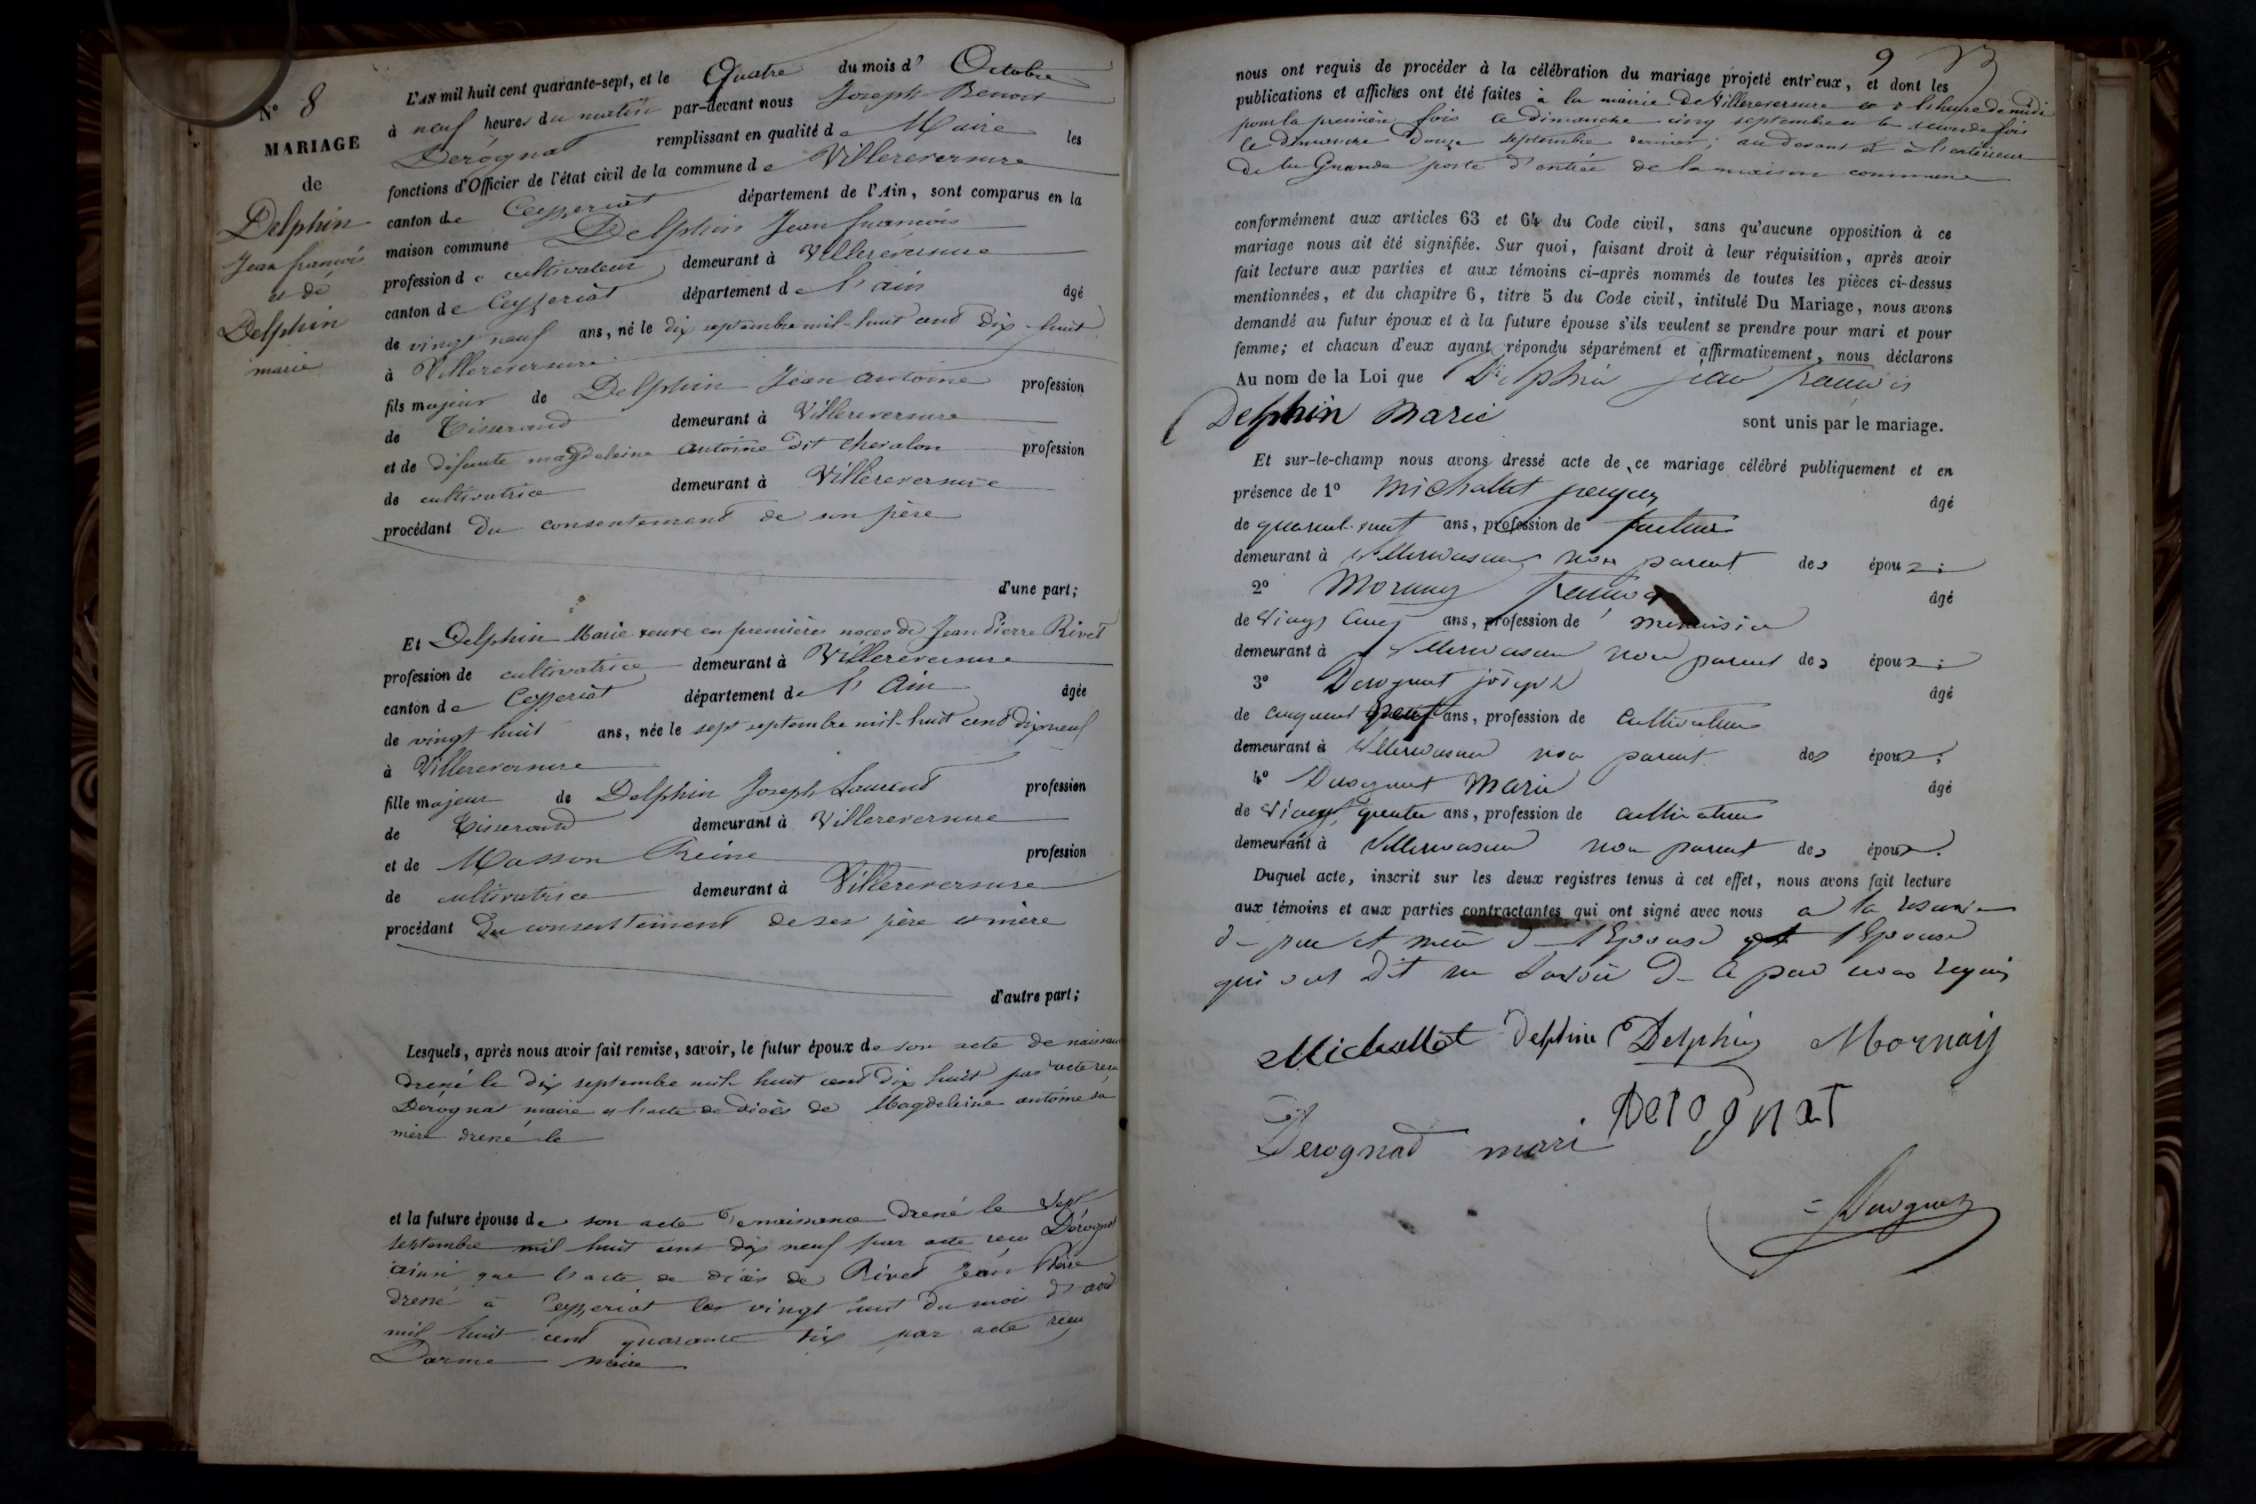 N° 8
MARIAGE
de
Delphin
Jean françois
et de
Delphin
marie
L'AN mil huit cent quarante-sept, et le Quatre du mois d' Octobre
à neuf heures du matin par-devant nous Joseph Benoit
Dérognat remplissant en qualité de Maire les
fonctions d'Officier de l'état civil de la commune de Villereversure
canton de Ceyzeriat département de l'Ain, sont comparus en la
maison commune Delphin Jean françois
profession de cultivateur demeurant à Villereversure
canton de Ceyzeriat département de l'ain âgé
de vingt neuf ans, né le dix septembre mil-huit cent dix-huit
à Villereversure
fils majeur de Delphin Jean antoine profession
de Tisserand demeurant à Villereversure
et de défunte magdeleine antoine dit chevalon profession
de cultivatrice demeurant à Villereversure
procédant du consentement de son père
d'une part;
Et Delphin Marie veuve en premières noces de Jean Pierre Rivet
profession de cultivatrice demeurant à Villereversure
canton de Ceyzeriat département de l'Ain âgée
de vingt huit ans, née le sept septembre mil-huit cent dix neuf
à Villereversure
fille majeur de Delphin Joseph Laurent profession
de Tisserand demeurant à Villereversure
et de Masson Reine profession
de cultivatrice demeurant à Villereversure
procédant du consentement de ses père et mère
d'autre part;
Lesquels, après nous avoir fait remise, savoir, le futur époux de son acte de naissance
dressé le dix septembre mil huit cent dix huit par acte reçu
Dérognat maire et l'acte de décès de Magdeleine antoine sa
mère dressé le
et la future épouse de son acte de naissance dressé le sept
septembre mil huit cent dix neuf par acte reçu Dérognat
ainsi que l'acte de décès de Rivet Jean Pierre
dressé à Ceyzeriat le vingt huit du mois d'aout
mil huit cent quarante six par acte reçu
Darme maire
9
nous ont requis de procéder à la célébration du mariage projeté entr'eux, et dont les
publications et affiches ont été faites à la mairie de Villereversure et à l'heure de midi
pour la première fois le dimanche cinq septembre et la seconde fois
le dimanche douze septembre dernier, au devant et à l'extérieur
de la Grande porte d'entrée de la maison commune
conformément aux articles 63 et 64 du Code civil, sans qu'aucune opposition à ce
mariage nous ait été signifiée. Sur quoi, faisant droit à leur réquisition, après avoir
fait lecture aux parties et aux témoins ci-après nommés de toutes les pièces ci-dessus
mentionnées, et du chapitre 6, titre 5 du Code civil, intitulé Du Mariage, nous avons
demandé au futur époux et à la future épouse s'ils veulent se prendre pour mari et pour
femme; et chacun d'eux ayant répondu séparément et affirmativement, nous déclarons
Au nom de la Loi que Delphin jean francois
Delphin Marie sont unis par le mariage.
Et sur-le-champ nous avons dressé acte de ce mariage célébré publiquement et en
présence de 1° Michallet âgé
de ans, profession de facteur
demeurant à Villereversure non parent des époux;
2° Mornay francois âgé
de vingt cinq ans, profession de menuisier
demeurant à Villereversure non parent des époux;
3° Derognat joseph âgé
de cinquant neuf ans, profession de cultivateur
demeurant à Villereversure non parent des époux;
4° Derognat Marie âgé
de vingt quatre ans, profession de cultivateur
demeurant à Villereversure non parent des époux.
Duquel acte, inscrit sur les deux registres tenus à cet effet, nous avons fait lecture
aux témoins et aux parties contractantes qui ont signé avec nous a la
de père et mère de l'Epouse et l'Epouse
qui ont dit ne savoir de ce par nous requis
Michallet Delphin Delphin Mornay
Derognat mari Derognat
Derognat